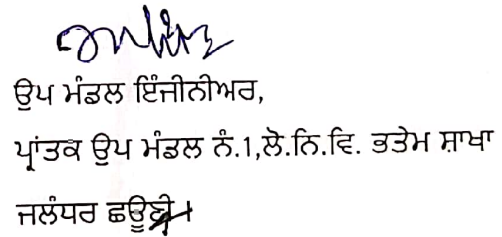 ਉਪ ਮੰਡਲ ਇੰਜੀਨੀਅਰ,
ਪ੍ਰਾਂਤਕ ਉਪ ਮੰਡਲ ਨੰ.1,ਲੋ.ਨਿ.ਵਿ. ਭਤੇਮ ਸ਼ਾਖਾ
ਜਲੰਧਰ ਛਉਣੀ।